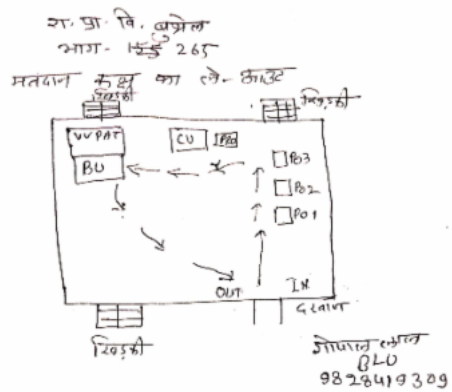 रा. प्रा. वि. बुम्रेल
भाग - 265
मतदान कक्ष का ले-आउट
खिड़की
खिड़की
VVPAT
CU
PRO
BU
PO3
PO2
PO1
OUT
IN
दरवाजा
खिड़की
गोपाल लाल
BLO
9828419309